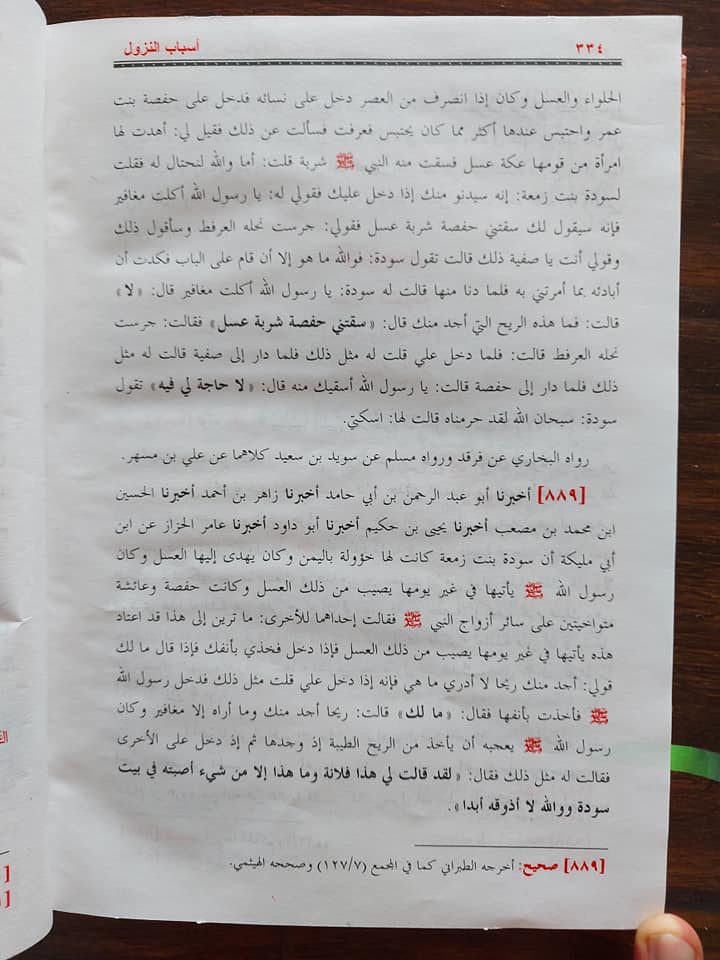 ٣٣٤
أسباب النزول
الحلواء والعسل وكان إذا انصرف من العصر دخل على نسائه فدخل على حفصة بنت
عمر واحتبس عندها أكثر مما كان يحتبس فعرفت فسألت عن ذلك فقيل لي: أهدت لها
امرأة من قومها عكة عسل فسقت منه النبي ﷺ شربة قلت: أما والله لنحتال له فقلت
لسودة بنت زمعة: إنه سيدنو منك إذا دخل عليك فقولي له: يا رسول الله أكلت مغافير
فإنه سيقول لك سقتني حفصة شربة عسل فقولي: جرست نحله العرفط وسأقول ذلك
وقولي أنت يا صفية ذلك قالت تقول سودة: فوالله ما هو إلا أن قام على الباب فكدت أن
أبادئه بما أمرتني به فلما دنا منها قالت له سودة: يا رسول الله أكلت مغافير قال: «لا»
قالت: فما هذه الريح التي أجد منك قال: «سقتني حفصة شربة عسل» فقالت: جرست
نحله العرفط قالت: فلما دخل علي قلت له مثل ذلك فلما دار إلى صفية قالت له مثل
ذلك فلما دار إلى حفصة قالت: يا رسول الله أسقيك منه قال: «لا حاجة لي فيه» تقول
سودة: سبحان الله لقد حرمناه قالت لها: اسكتي.
رواه البخاري عن فرقد ورواه مسلم عن سويد بن سعيد كلاهما عن علي بن مسهر.
[٨٨٩] أخبرنا أبو عبد الرحمن بن أبي حامد أخبرنا زاهر بن أحمد أخبرنا الحسين
ابن محمد بن مصعب أخبرنا يحيى بن حكيم أخبرنا أبو داود أخبرنا عامر الخزاز عن ابن
أبي مليكة أن سودة بنت زمعة كانت لها خؤولة باليمن وكان يهدى إليها العسل وكان
رسول الله ﷺ يأتيها في غير يومها يصيب من ذلك العسل وكانت حفصة وعائشة
متواخيتين على سائر أزواج النبي ﷺ فقالت إحداهما للأخرى: ما ترين إلى هذا قد اعتاد
هذه يأتيها في غير يومها يصيب من ذلك العسل فإذا دخل فخذي بأنفك فإذا قال ما لك
قولي: أجد منك ريحا لا أدري ما هي فإنه إذا دخل علي قلت مثل ذلك فدخل رسول الله
ﷺ فأخذت بأنفها فقال: «ما لك» قالت: ريحا أجد منك وما أراه إلا مغافير وكان
رسول الله ﷺ يعجبه أن يأخذ من الريح الطيبة إذ وجدها ثم إذ دخل على الأخرى
فقالت له مثل ذلك فقال: «لقد قالت لي هذا فلانة وما هذا إلا من شيء أصبته في بيت
سودة ووالله لا أذوقه أبدا».
[٨٨٩] صحيح: أخرجه الطبراني كما في المجمع (١٢٧/٧) وصححه الهيثمي.